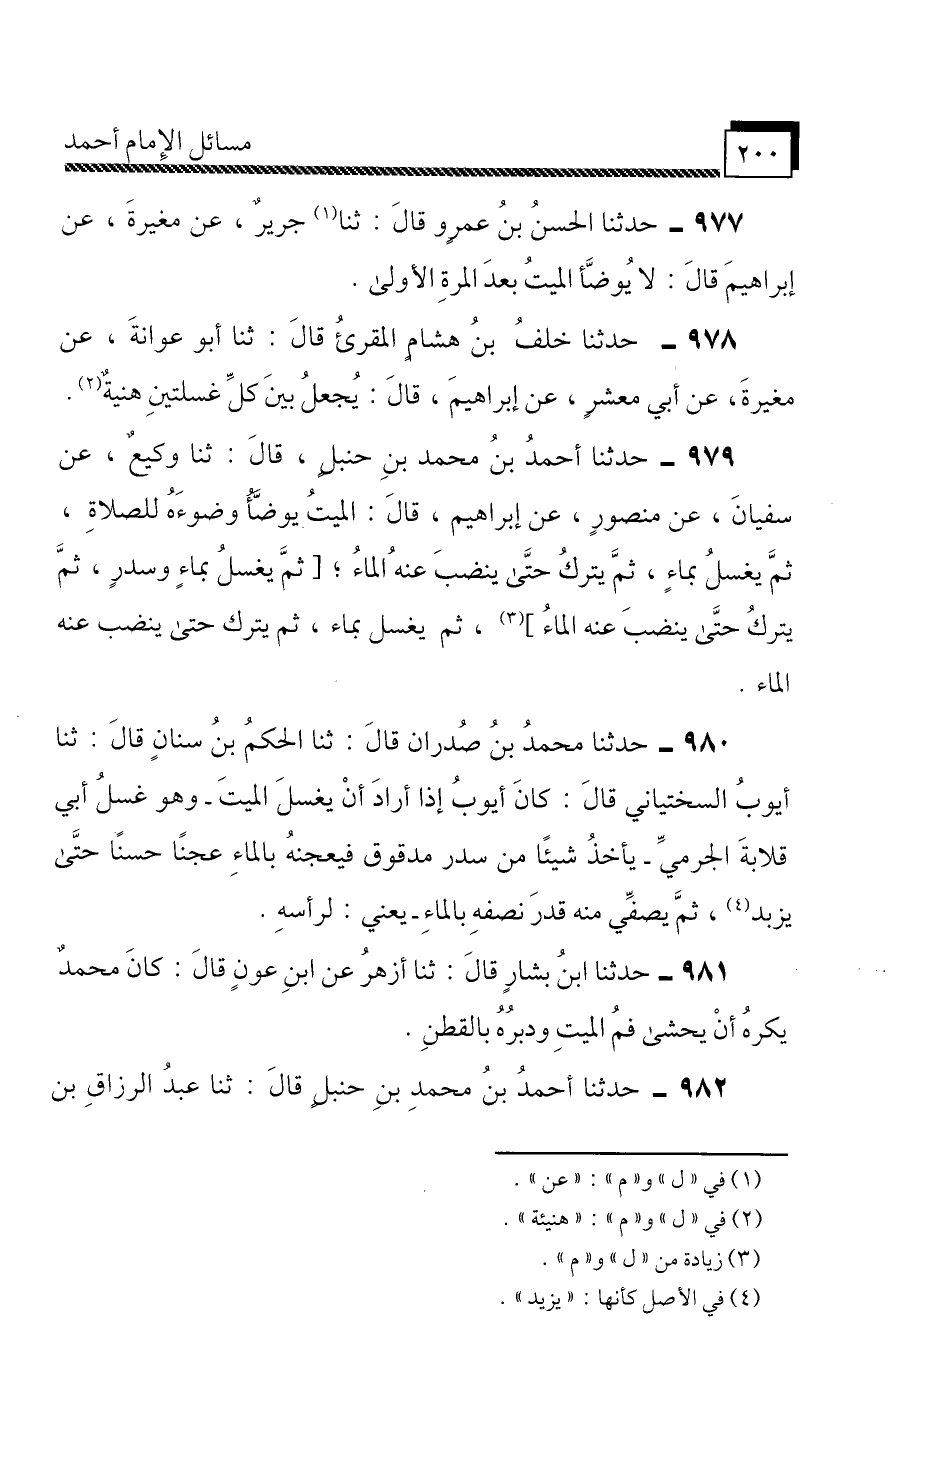 ٢٠٠ مسائل الإمام أحمد
٩٧٧ ـ حدثنا الحسنُ بنُ عمرٍو قالَ : ثنا(١) جريرٌ ، عن مغيرةَ ، عن
إبراهيمَ قالَ : لا يُوضَّأ الميتُ بعدَ المرةِ الأولىٰ .
٩٧٨ ـ حدثنا خلفُ بنُ هشامٍ المقرئُ قالَ : ثنا أبو عوانةَ ، عن
مغيرةَ، عن أبي معشرٍ ، عن إبراهيمَ ، قالَ : يُجعلُ بينَ كلِّ غسلتينِ هنيةٌ(٢).
٩٧٩ ـ حدثنا أحمدُ بنُ محمد بنِ حنبلٍ ، قالَ : ثنا وكيعٌ ، عن
سفيانَ ، عن منصورٍ ، عن إبراهيم ، قالَ : الميتُ يوضَّأُ وضوءَهُ للصلاةِ ،
ثمَّ يغسلُ بماءٍ ، ثمَّ يتركُ حتَّىٰ ينضبَ عنه الماءُ ؛ [ ثمَّ يغسلُ بماءٍ وسدرٍ ، ثمَّ
يتركُ حتَّىٰ ينضبَ عنه الماءُ ](٣) ، ثم يغسل بماء ، ثم يترك حتىٰ ينضب عنه
الماء .
٩٨٠ ـ حدثنا محمدُ بنُ صُدران قالَ : ثنا الحكمُ بنُ سنانٍ قالَ : ثنا
أيوبُ السختياني قالَ : كانَ أيوبُ إذا أرادَ أنْ يغسلَ الميتَ ـ وهو غسلُ أبي
قلابةَ الجرميِّ ـ يأخذُ شيئًا من سدر مدقوق فيعجنهُ بالماءِ عجنًا حسنًا حتَّىٰ
يزبد(٤) ، ثمَّ يصفِّي منه قدرَ نصفهِ بالماءِ ـ يعني : لرأسهِ .
٩٨١ ـ حدثنا ابنُ بشارٍ قالَ : ثنا أزهرُ عن ابنِ عونٍ قالَ : كانَ محمدٌ
يكرهُ أنْ يحشىٰ فمُ الميتِ ودبرُهُ بالقطنِ .
٩٨٢ ـ حدثنا أحمدُ بنُ محمدِ بنِ حنبلٍ قالَ : ثنا عبدُ الرزاقِ بن
(١) في « ل » و« م » : « عن » .
(٢) في « ل » و« م » : « هنيئة » .
(٣) زيادة من « ل » و« م » .
(٤) في الأصل كأنها : « يزيد » .